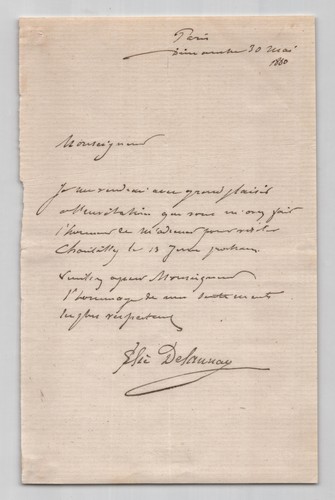 Paris
Dimanche 30 Mai
1880
Monseigneur
Je me rendrai avec grand plaisir
à l'invitation que vous m'avez fait
l'honneur de m'adresser pour
Chantilly le 13 Juin prochain.
Veuillez agréer Monseigneur
l'hommage de mes sentiments
les plus respectueux
Elie Delaunay